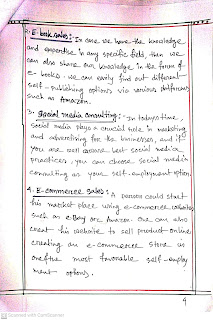 2. E-book sales:- In case we have the knowledge
and expertise in any specific field, then we
can also share our knowledge in the form of
e-books. we can easily find out different
self-publishing options via various
such as Amazon.
3. Social media consulting:- In todays time,
social media plays a crucial role in marketing
and advertising for the businesses, and if
you are well aware best social media
practices, you can choose social media
consulting as your self-employment option.
4. E-commerce sales: A person could start
his market place using e-commerce websites
such as e-Bay or Amazon one can also
creat his website to sell product online
creating an e-commerce store is
one the most favorable self-employ
ment options.
9
Scanned with CamScanner